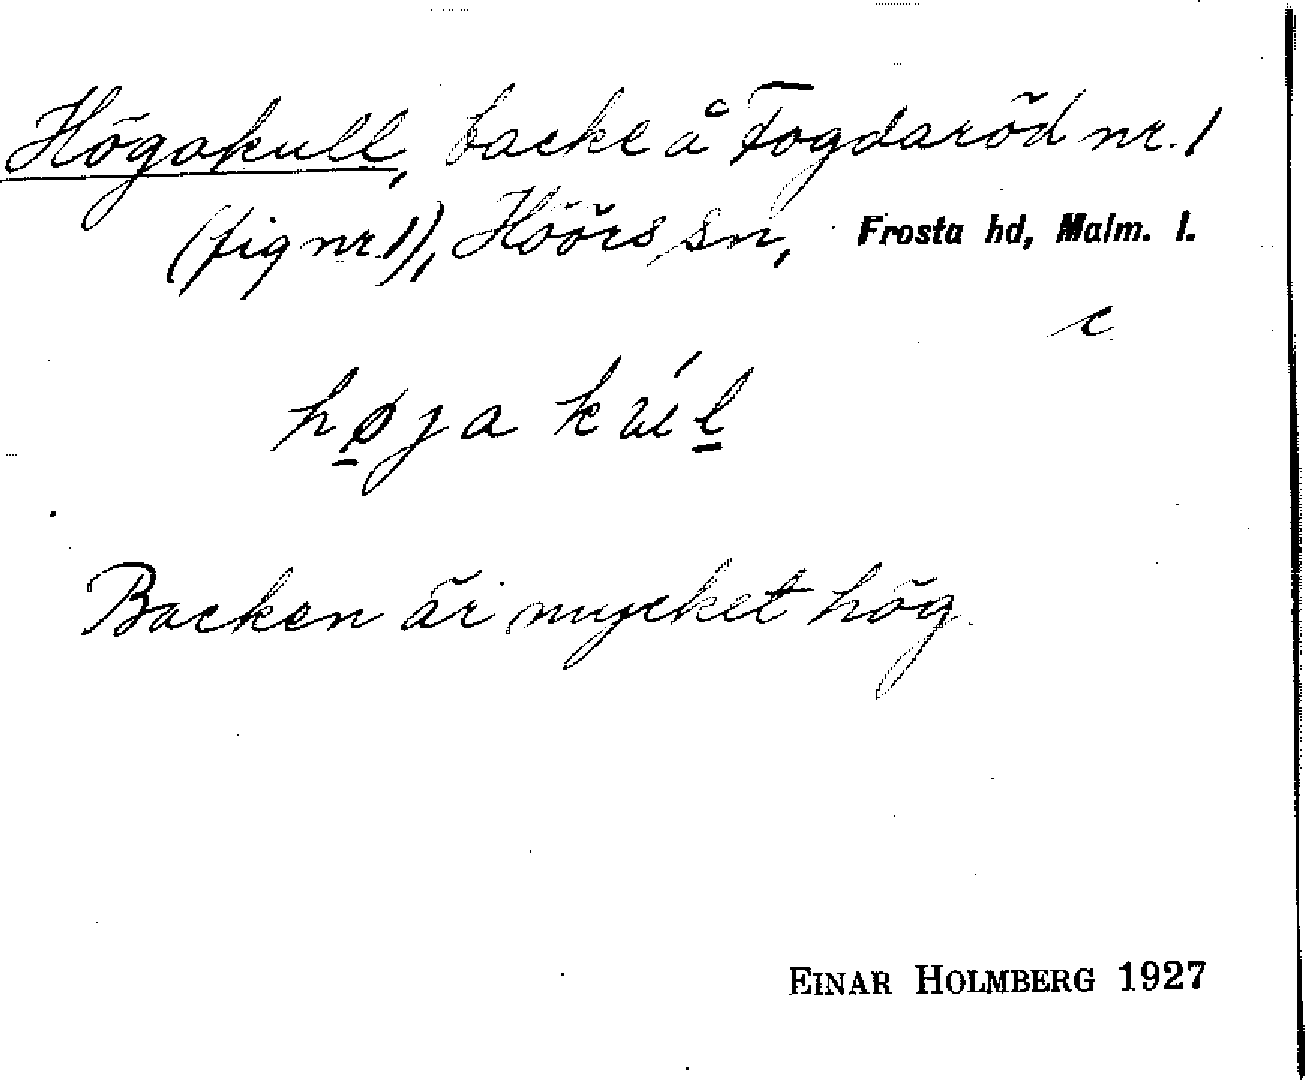 Högakull, backe å Fogdaröd nr. 1
(fig nr. 1), Höörs sn, Frosta hd, Malm. l.
c
høja kúl
Backen är mycket hög.
EINAR HOLMBERG 1927